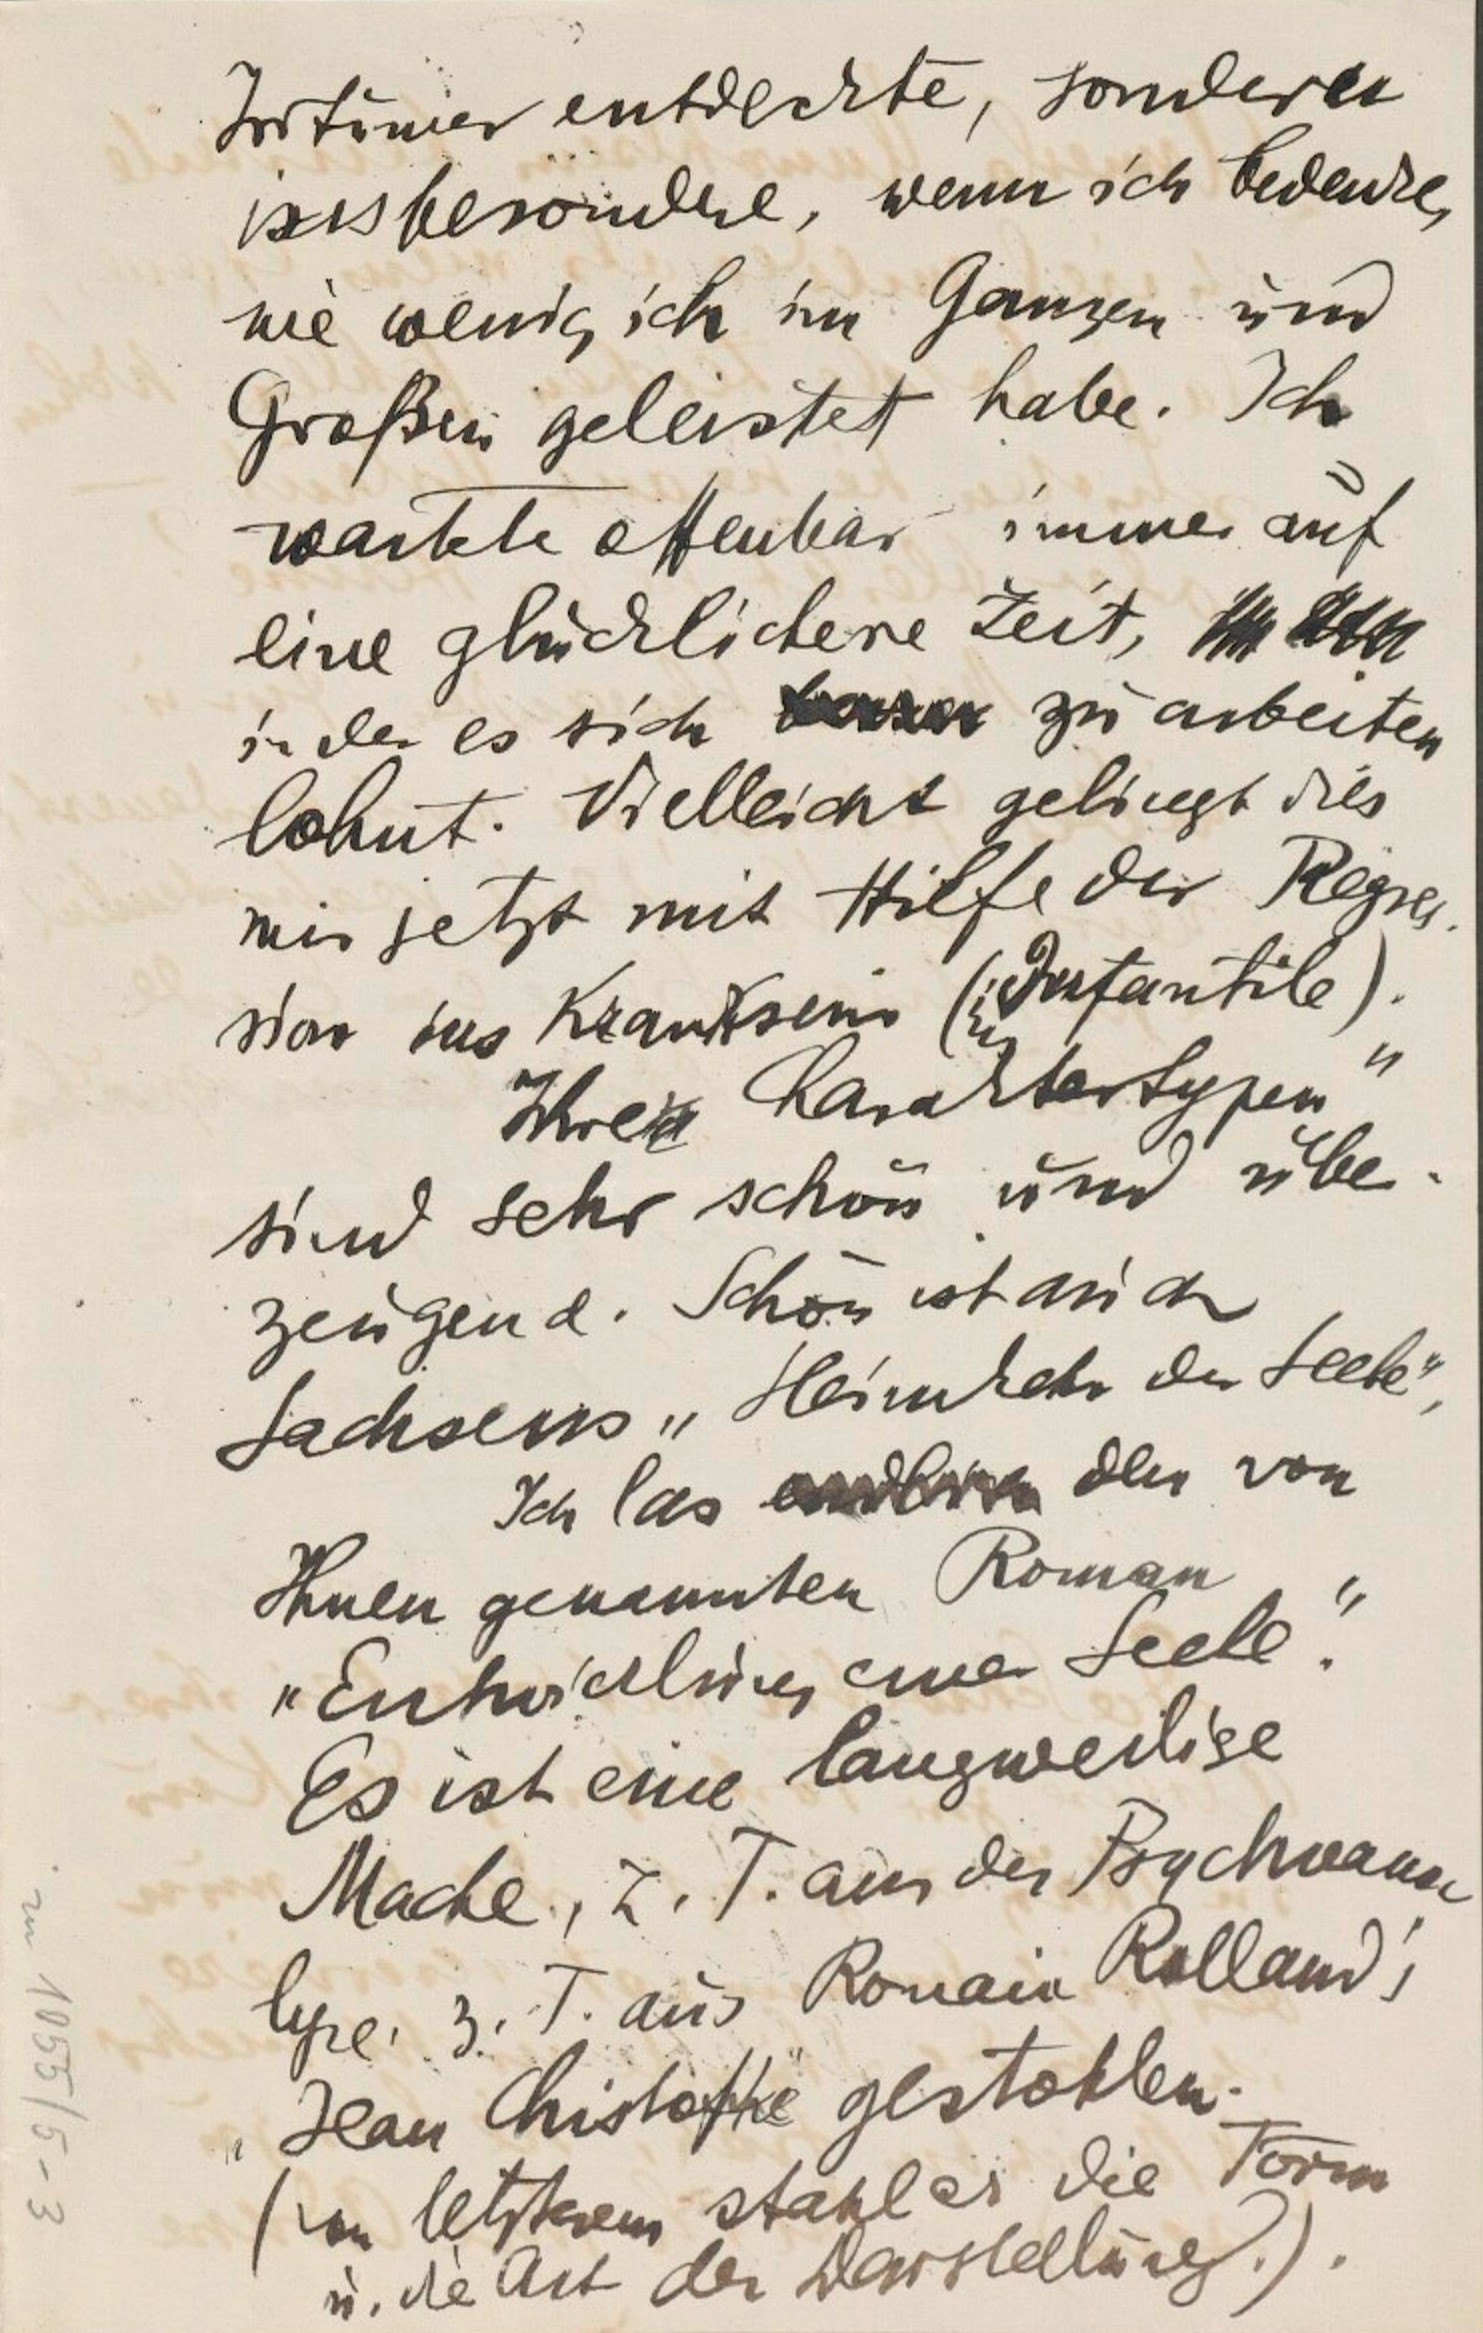 Irrtümer entdeckte, sondern
insbesondere, wenn ich bedenke,
wie wenig ich im Ganzen und
Großen geleistet habe. Ich
wartete offenbar immer auf
eine glücklichere Zeit,
in der es sich zu arbeiten
lohnt. Vielleicht gelingt dies
mir jetzt mit Hilfe der Regres-
sion ins Kranksein (ins Infantile).
Ihre Charaktertypen"
sind sehr schön und über-
zeugend. Schön ist auch
Sachsens „Heimkehr der Seele",
Ich las den von
Ihnen genannten Roman
„Entwicklung einer Seele".
Es ist eine langweilige
Mache, z. T. aus der Psychoana-
lyse, z. T. aus Romain Rolland's
„Jean Christophe" gestohlen.
(von letzterem stahl er die Form
u. die Art der Darstellung.).
zu 1055/5-3